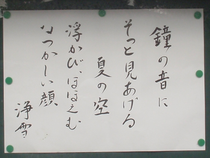 鐘の音に
そっと見あげる
夏の空
浮かび、ほほえむ
なつかしい顔
浄雪